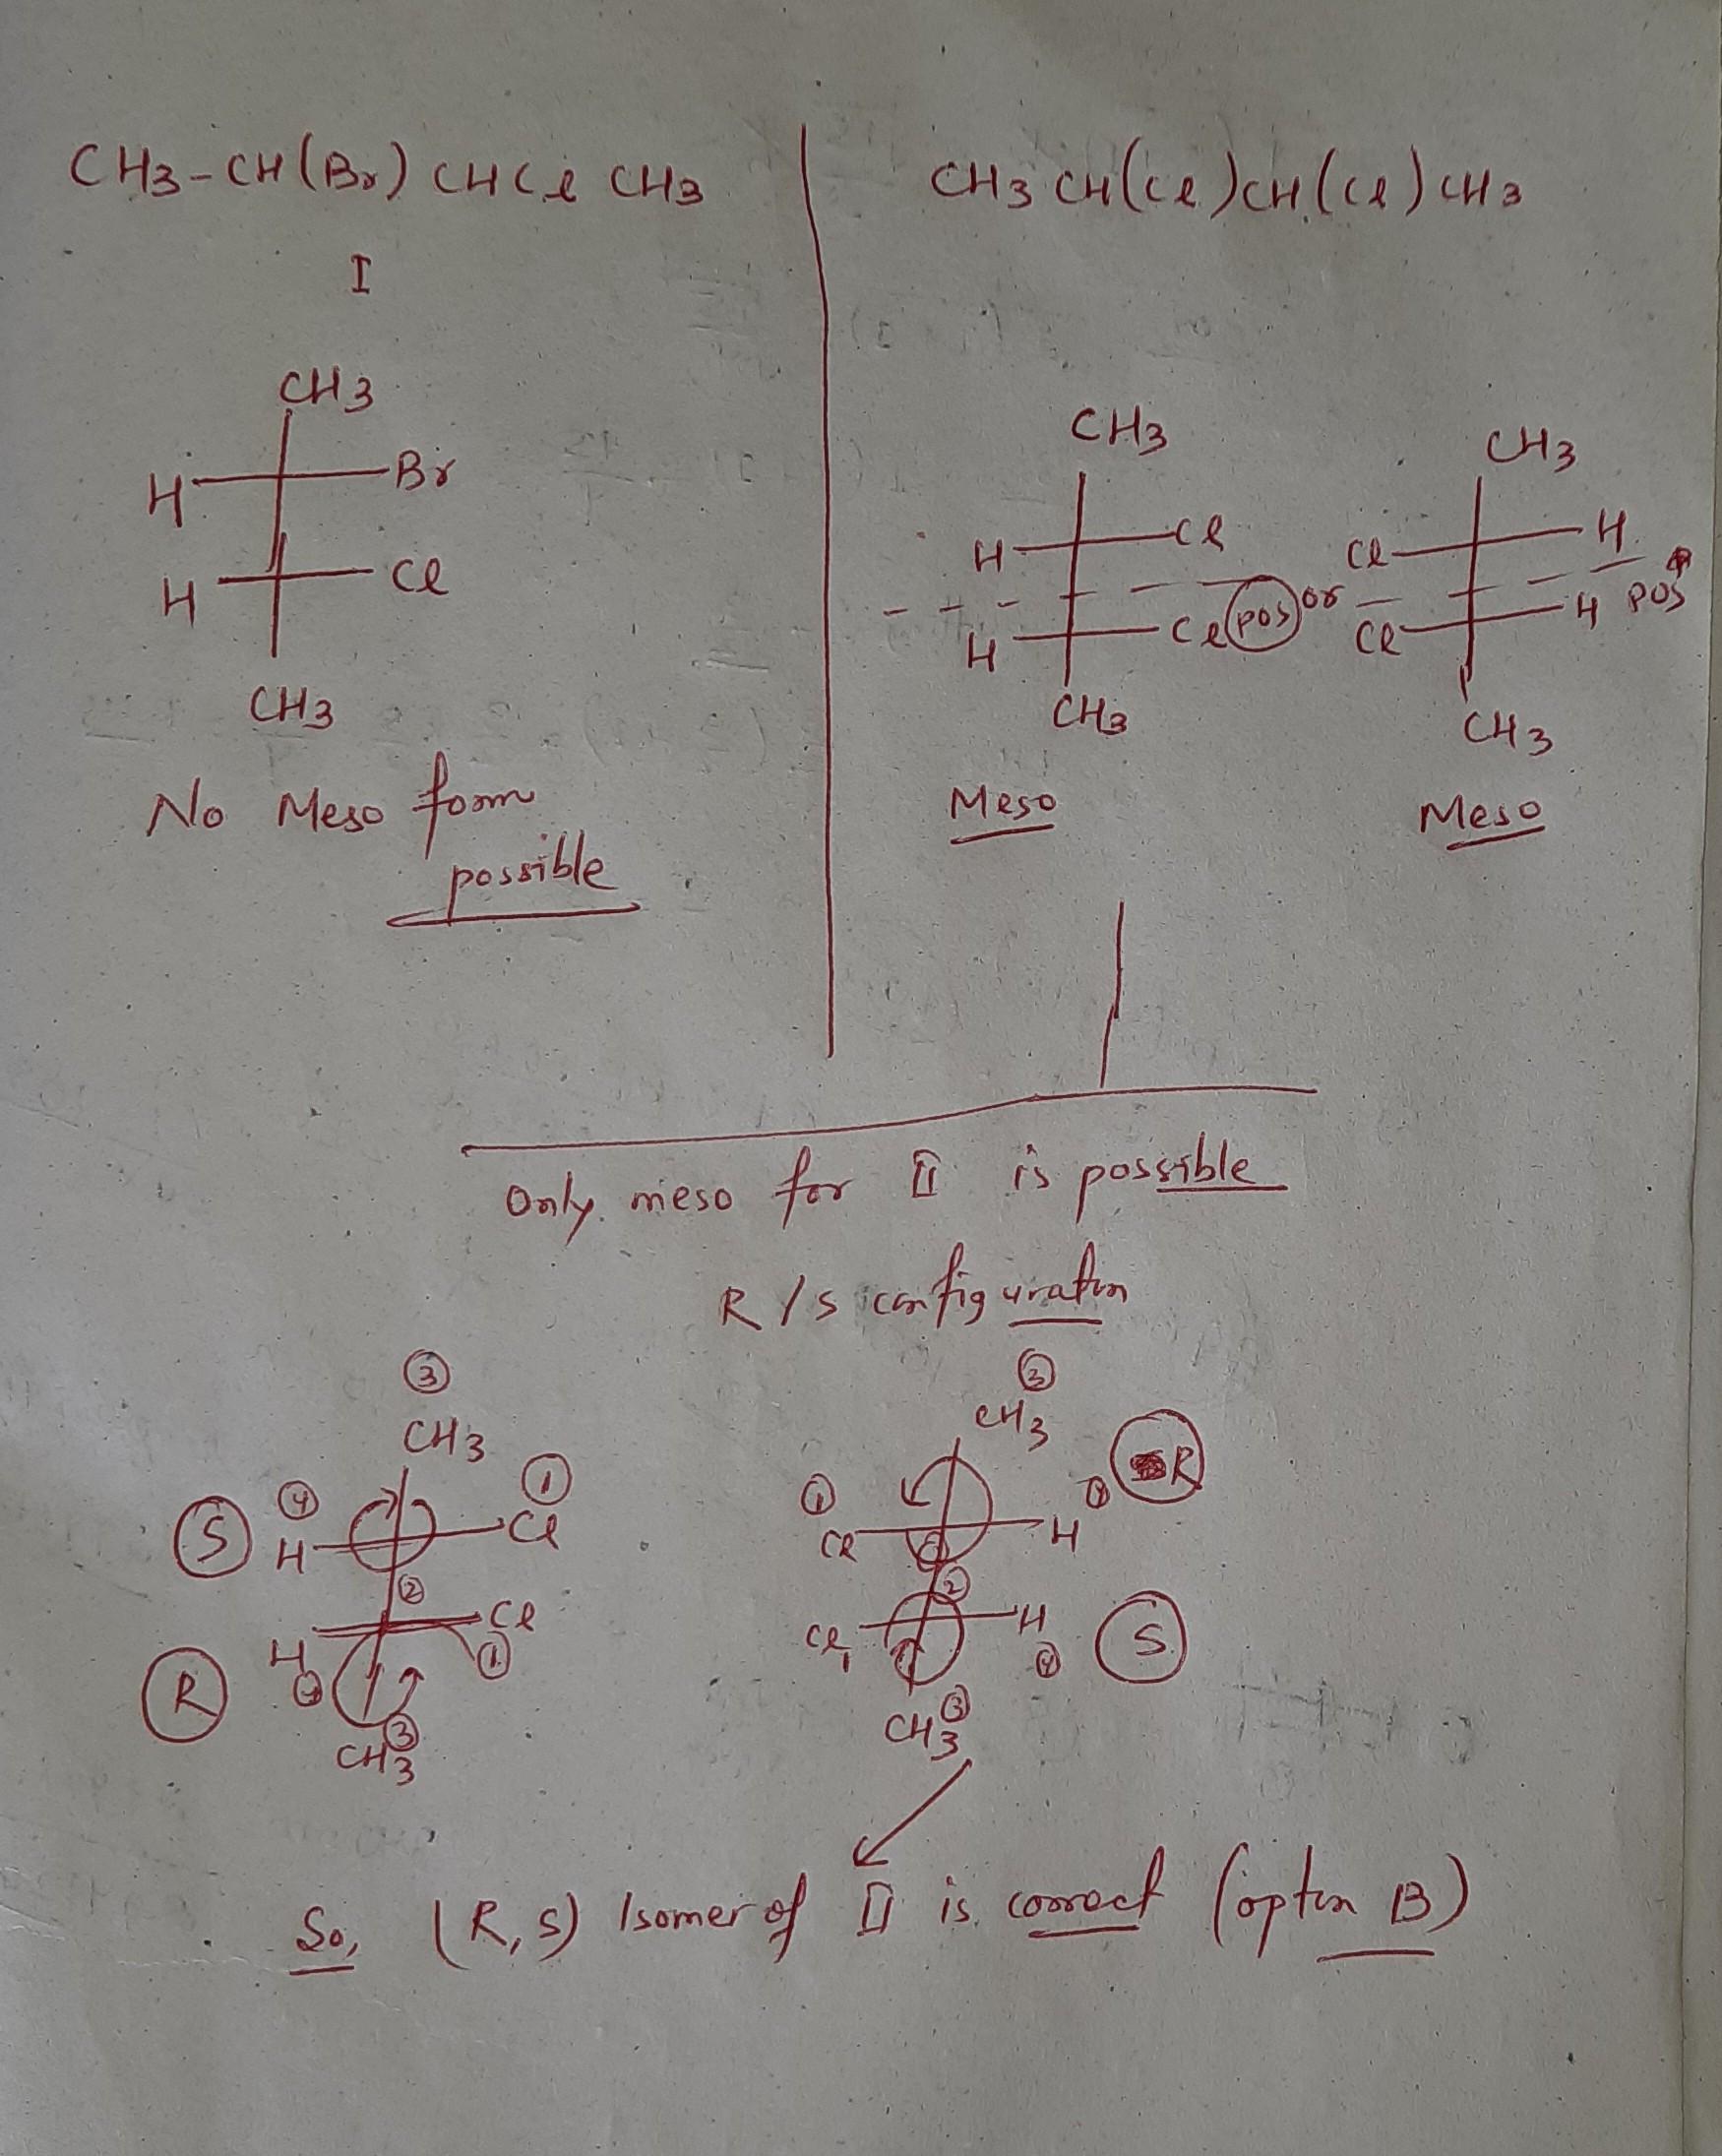 CH3-CH(Br) CHCl CH3
I
CH3
H Br
H Cl
CH3
No Meso form
possible
CH3 CH(Cl)CH(Cl)CH3
CH3
H Cl
pos
H Cl
CH3
Meso
or
CH3
Cl H
POS
Cl H
CH3
Meso
Only meso for II is possible
R/S configuration
3
CH3
S 4 1
H Cl
2
H Cl
R 4 1
3
CH3
3
CH3
1 4 R
Cl H
2
Cl H
1 4 S
3
CH3
So, (R,S) Isomer of II is correct (option B)